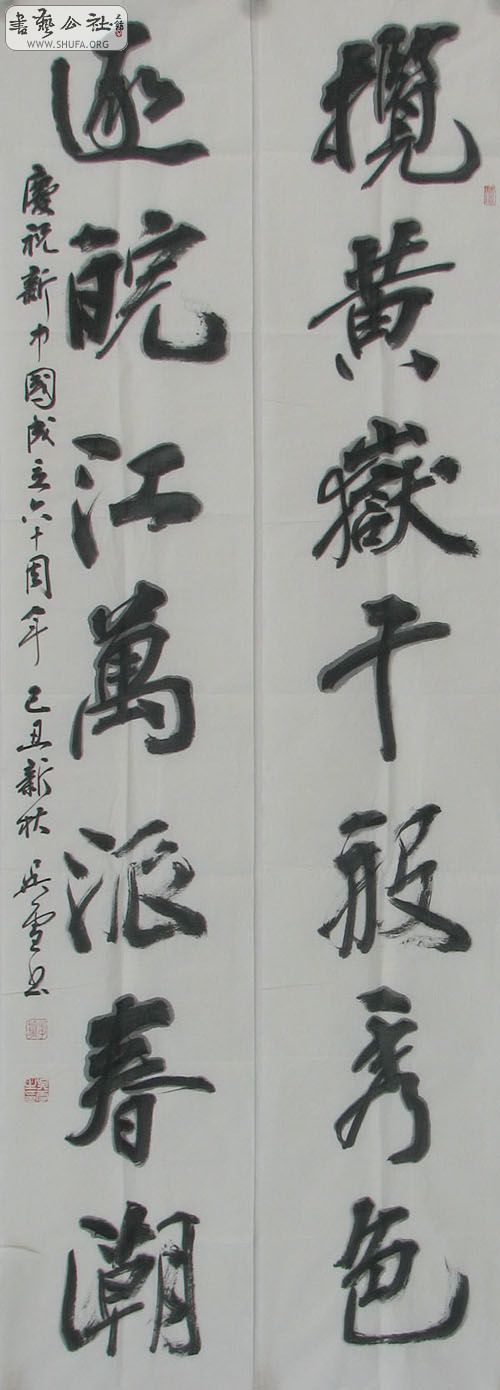 書藝公社
WWW.SHUFA.ORG
攬黄嶽千般秀色
逐皖江萬派春潮
慶祝新中國成立六十周年 己丑新秋 吳雪書